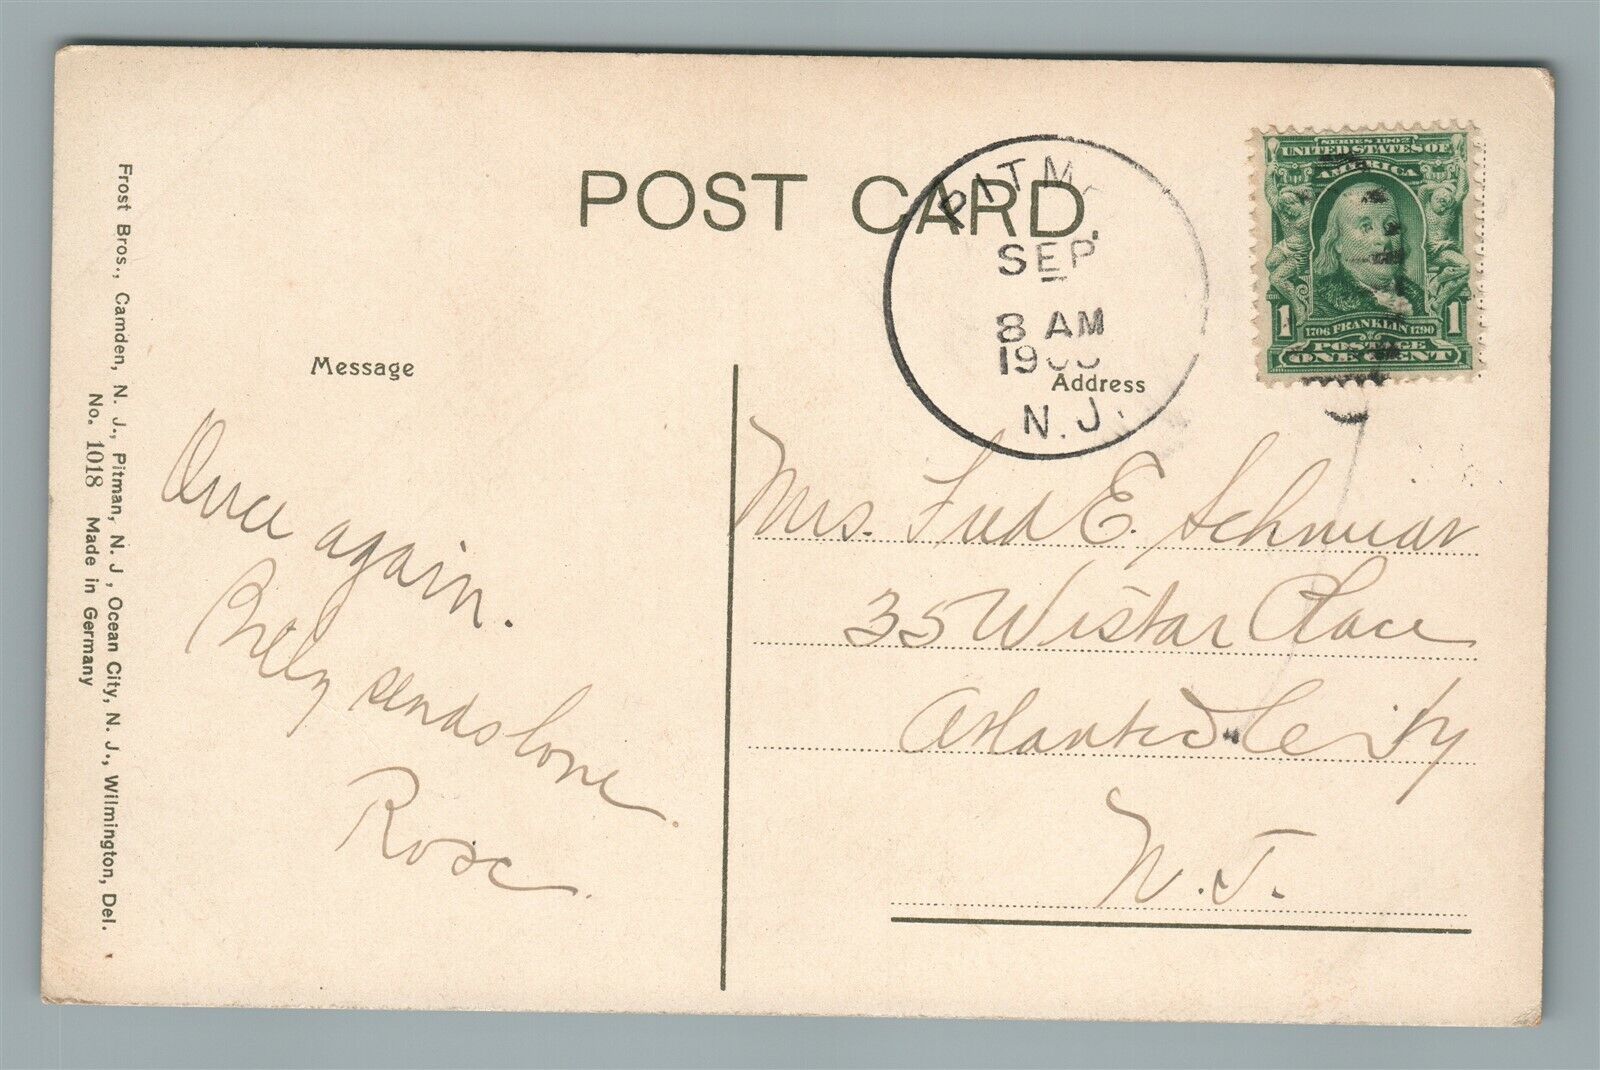 POST CARD.
PITM
SEP
8 AM
N. J.
SERIES 1902
UNITED STATES OF
AMERICA
1 1706 FRANKLIN 1790 1
POSTAGE
ONE CENT
Message
Address
Once again.
Billy sends love.
Rose.
Mrs. Fred E. Schmidt
35 Wistar Place
Atlantic City
N. J.
Frost Bros., Camden, N. J., Pitman, N. J., Ocean City, N. J., Wilmington, Del.
No. 1018 Made in Germany